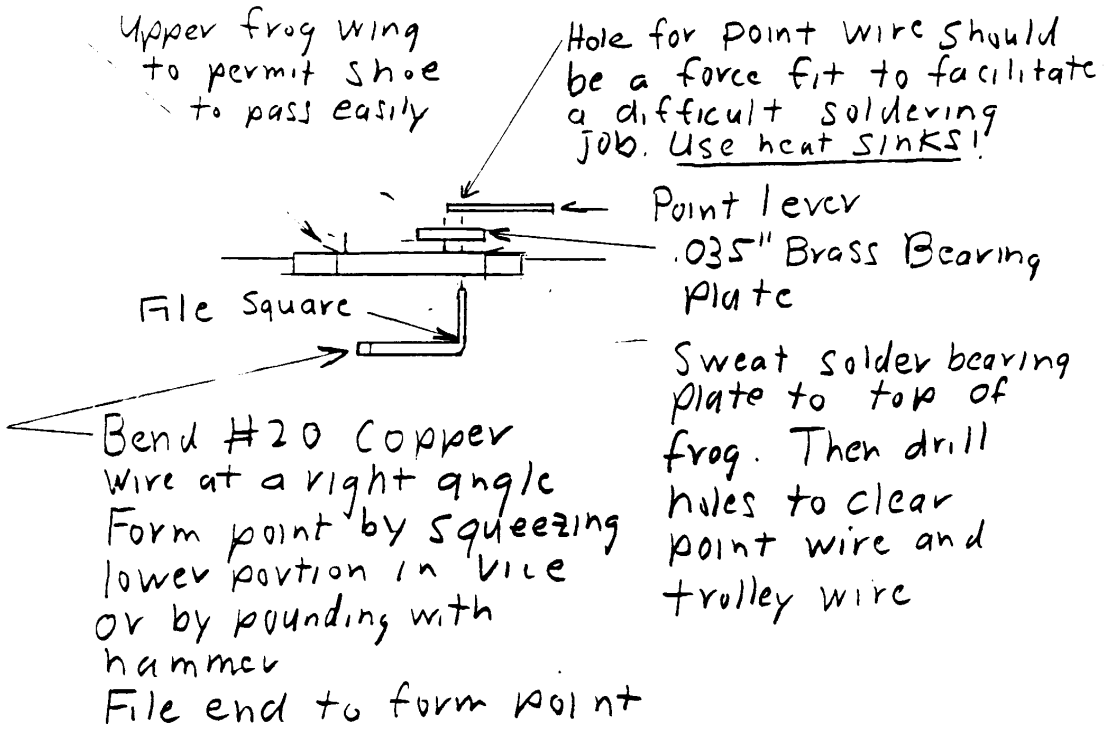 Upper frog wing
to permit shoe
to pass easily
Hole for point wire should
be a force fit to facilitate
a difficult soldering
job. Use heat sinks!
Point lever
.035" Brass Bearing
Plate
File Square
Sweat solder bearing
plate to top of
frog. Then drill
holes to clear
point wire and
trolley wire
Bend #20 Copper
wire at a right angle
Form point by squeezing
lower portion in vice
or by pounding with
hammer
File end to form point